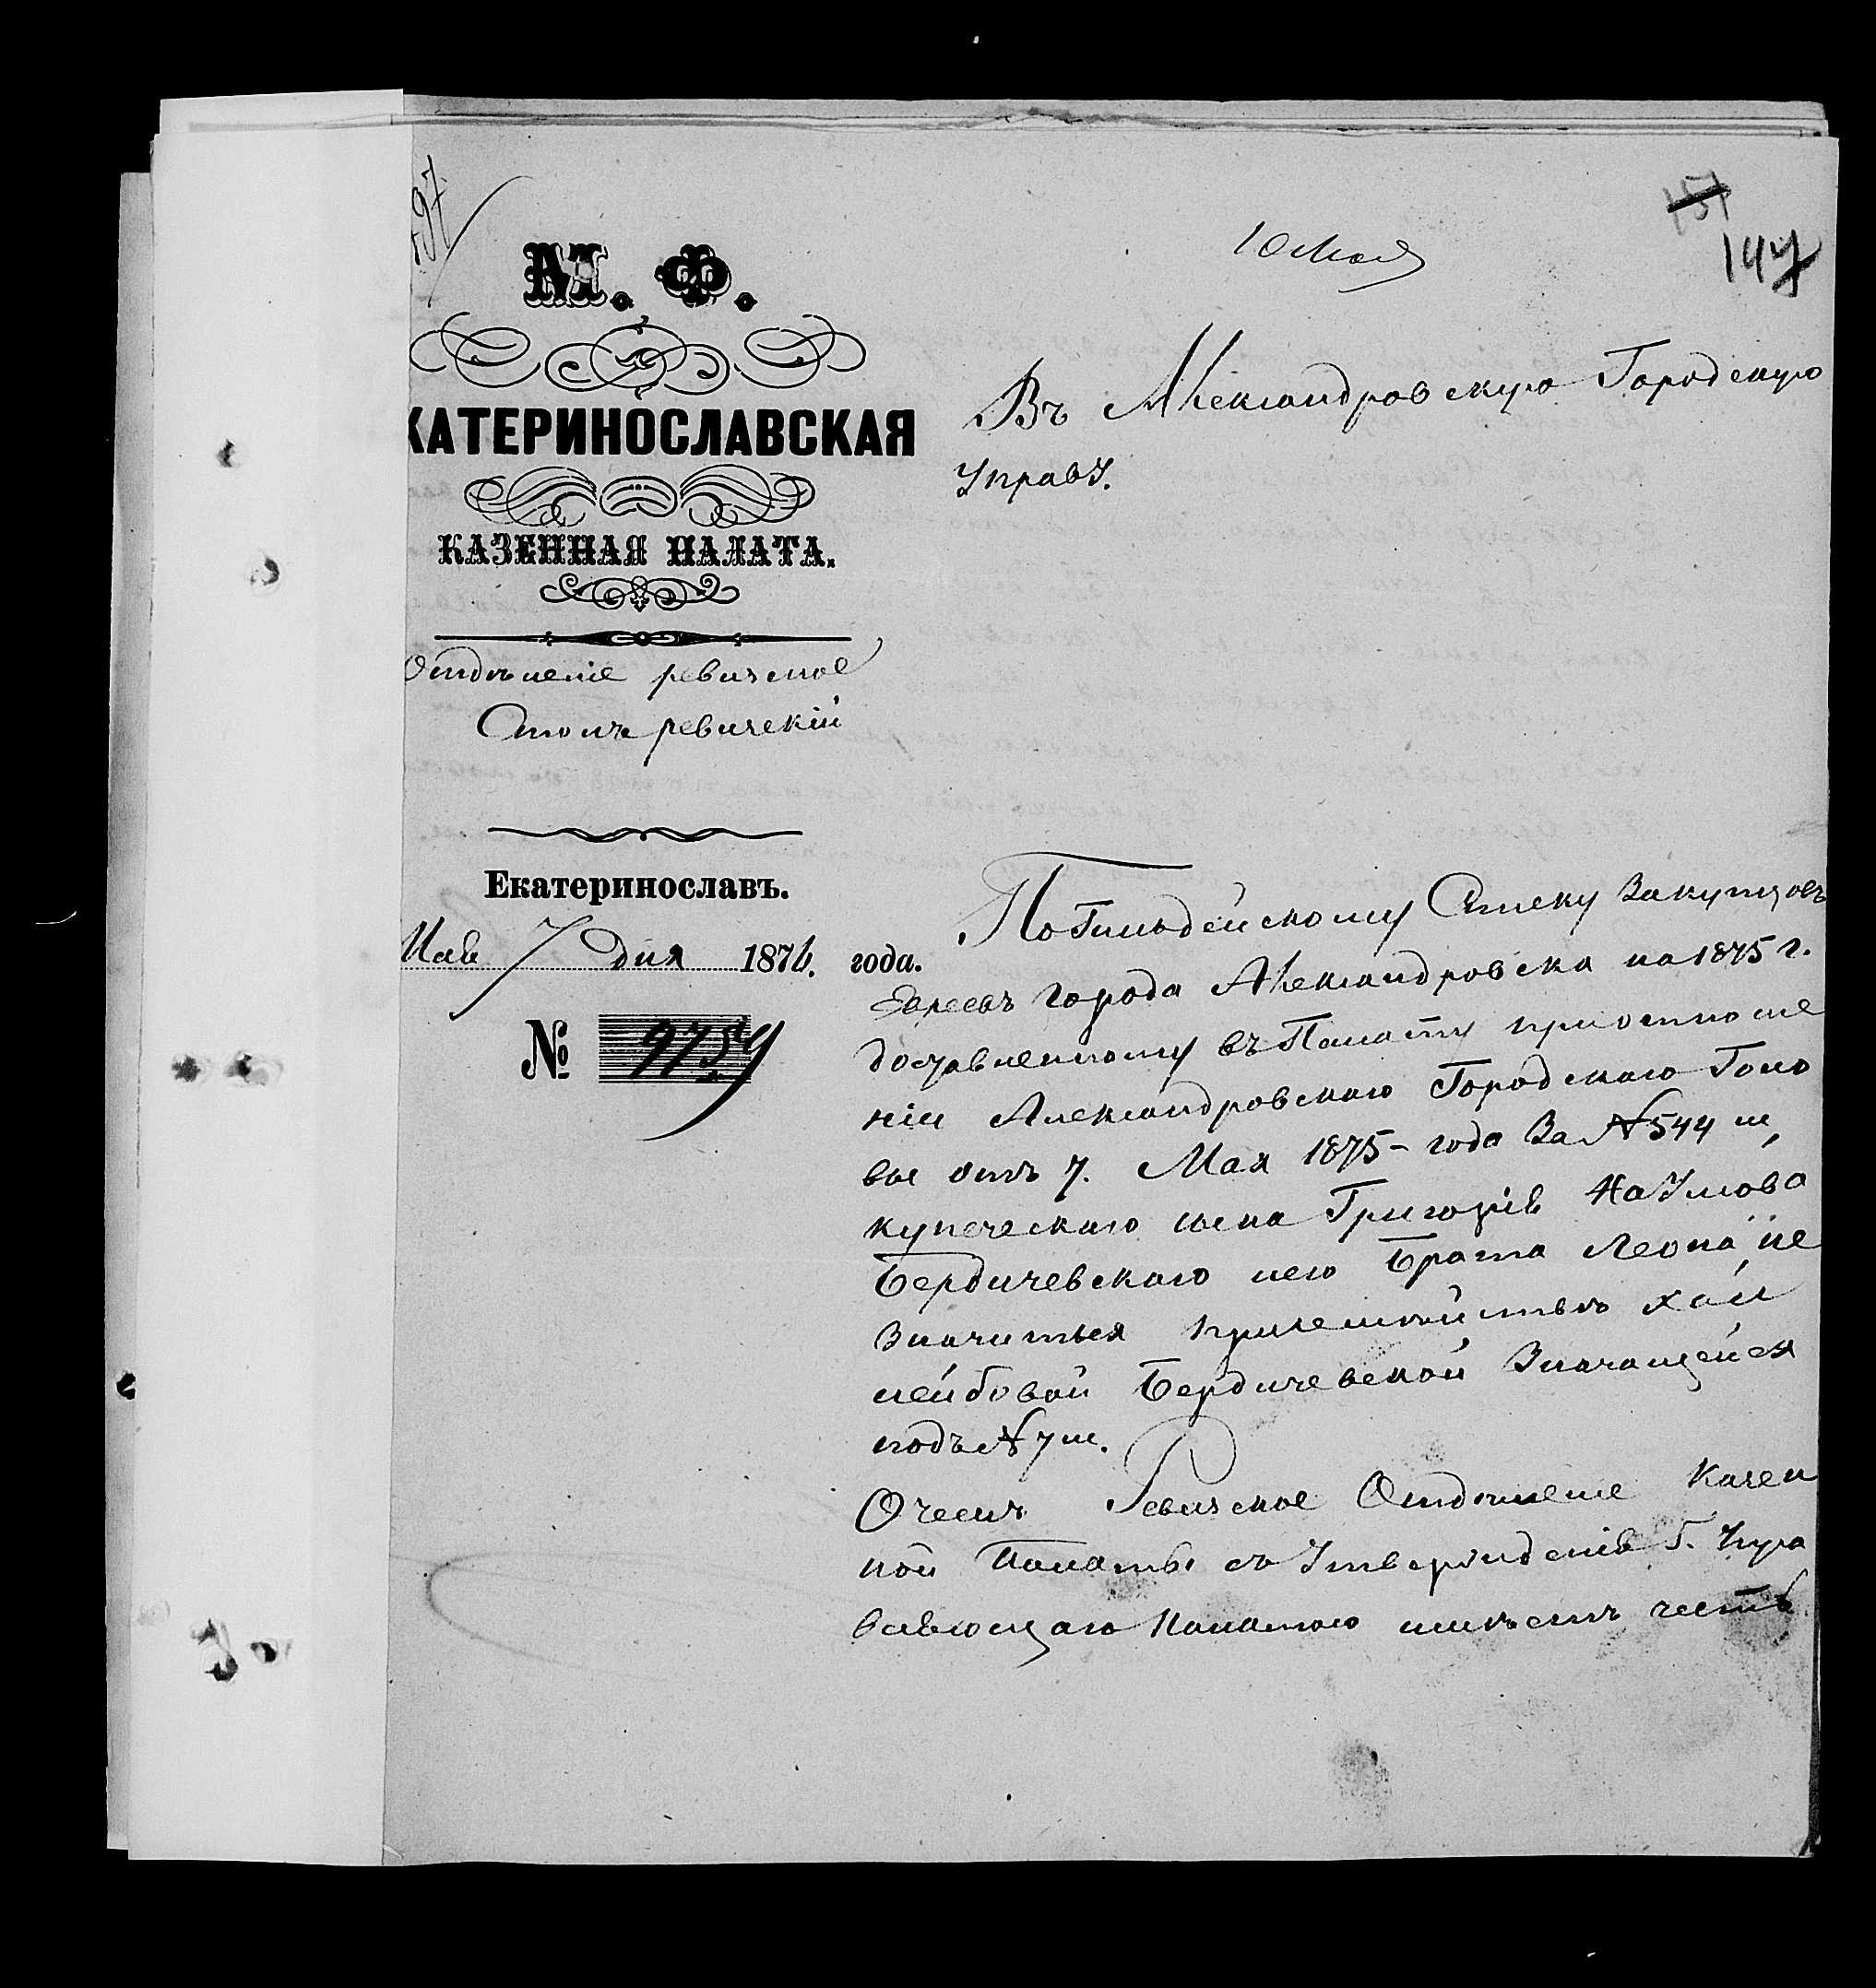 10 Мая
151
147
М. Ф.
КАТЕРИНОСЛАВСКАЯ
КАЗЕННАЯ ПАЛАТА.
Отдѣленіе ревизское
Столъ ревизскій
Екатеринославъ.
Мая 7 дня 187 года.
№ 9759
Въ Александровскую Городскую
Управу.
По Гильдейскому Списку Закупцовъ
Евреевъ города Александровска на 1875 г.
доставленному въ Палату приотноше
ніи Александровскаго Городскаго Голо
вы отъ 7. Мая 1875 - года За № 544 м,
купеческаго сына Григорія Наумова
Бердичевскаго иего Брата Леона, не
Значиться
лейбовой Бердичевской Значащейся
подъ № 7 м.
О чемъ Ревизское Отдѣленіе Казен
ной Палаты съ Утвержденія Г. Упра
вляющаго Палатою имѣетъ честь